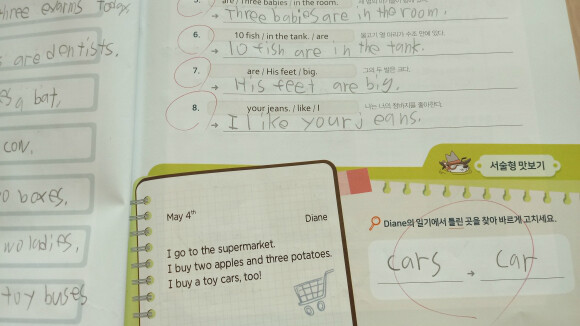 three exams today.
are dentists.
a bat.
con.
boxes.
ladies.
toy buses
5.
are / Three babies / in the room.
→ Three babies are in the room.
6.
10 fish / in the tank. / are
물고기 열 마리가 수조 안에 있다.
→ 10 fish are in the tank.
7.
are / His feet / big.
그의 두 발은 크다.
→ His feet are big.
8.
your jeans. / like / I
나는 너의 청바지를 좋아한다.
→ I like your jeans.
서술형 맛보기
May 4th
Diane
I go to the supermarket.
I buy two apples and three potatoes.
I buy a toy cars, too!
Diane의 일기에서 틀린 곳을 찾아 바르게 고치세요.
cars → car